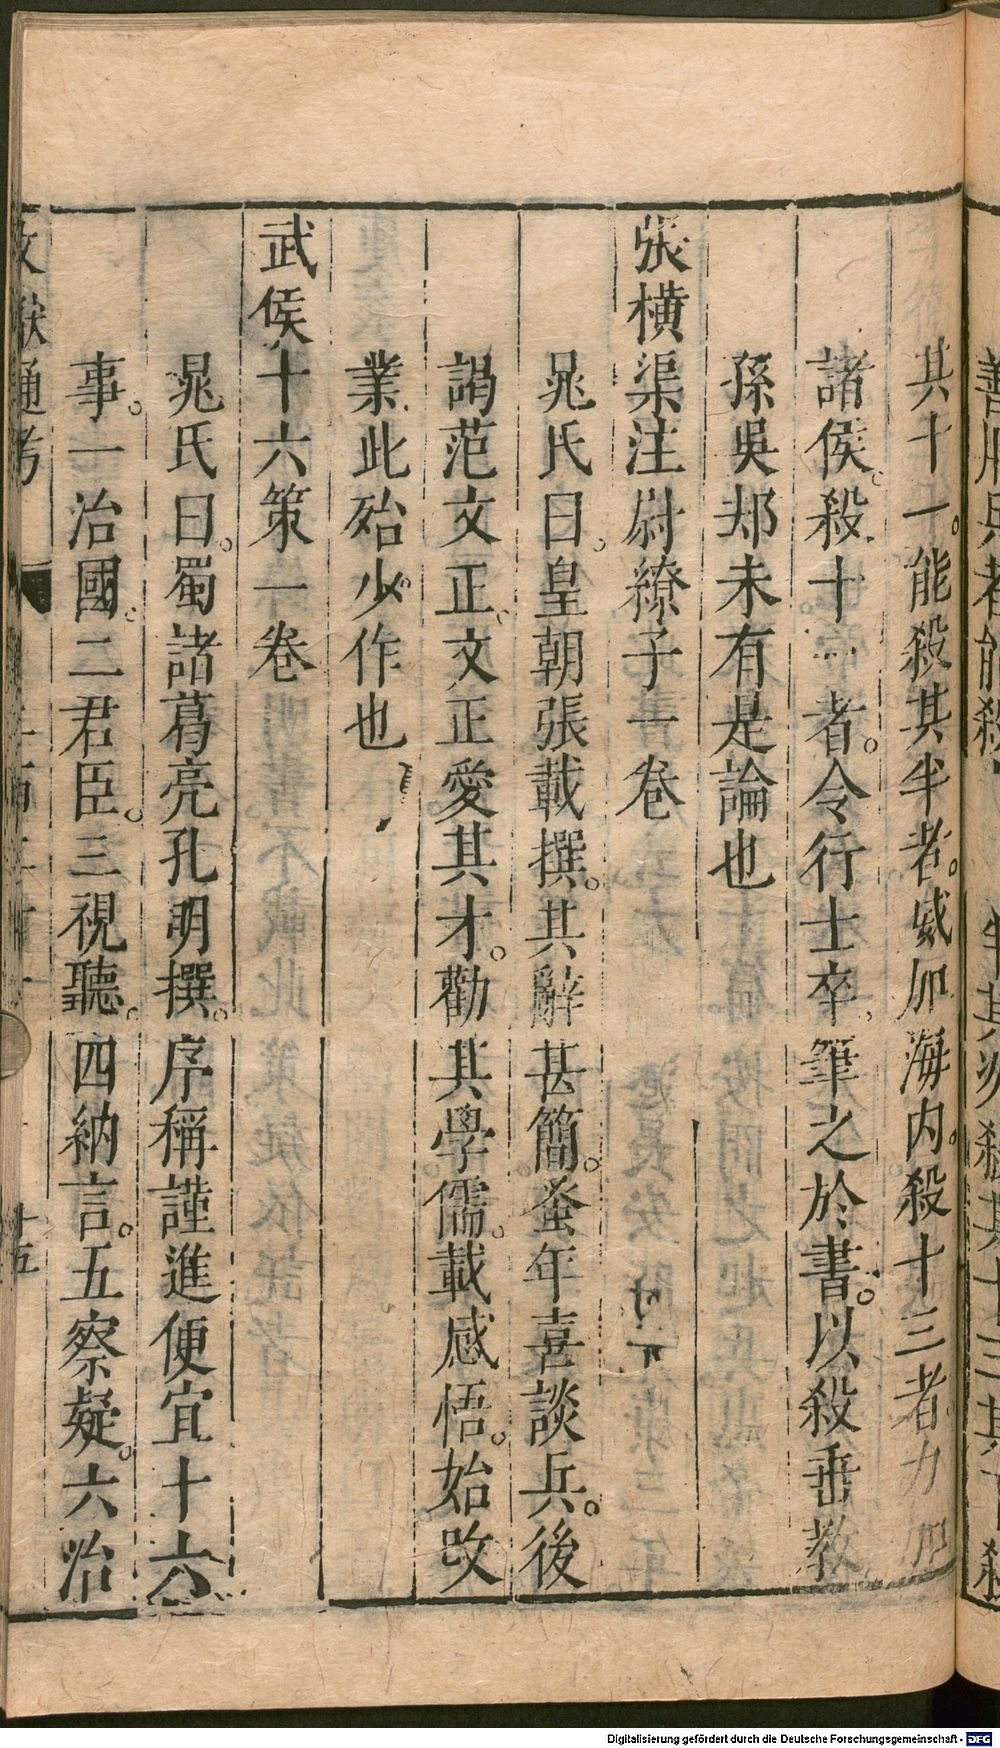 善用兵者能殺
其十一。能殺其半者。威加海內。殺十三者。力加
諸侯。殺十一者。令行士卒。筆之於書。以殺垂教
孫吳却未有是論也
張橫渠注尉繚子一卷
晁氏曰。皇朝張載撰。其辭甚簡。蚤年喜談兵。後
謁范文正。文正愛其才。勸其學儒。載感悟。始改
業。此殆少作也
武侯十六策一卷
晁氏曰。蜀諸葛亮孔明撰。序稱謹進便宜十六
事。一治國。二君臣。三視聽。四納言。五察疑。六治
文獻通考
十五
Digitalisierung gefördert durch die Deutsche Forschungsgemeinschaft - DFG